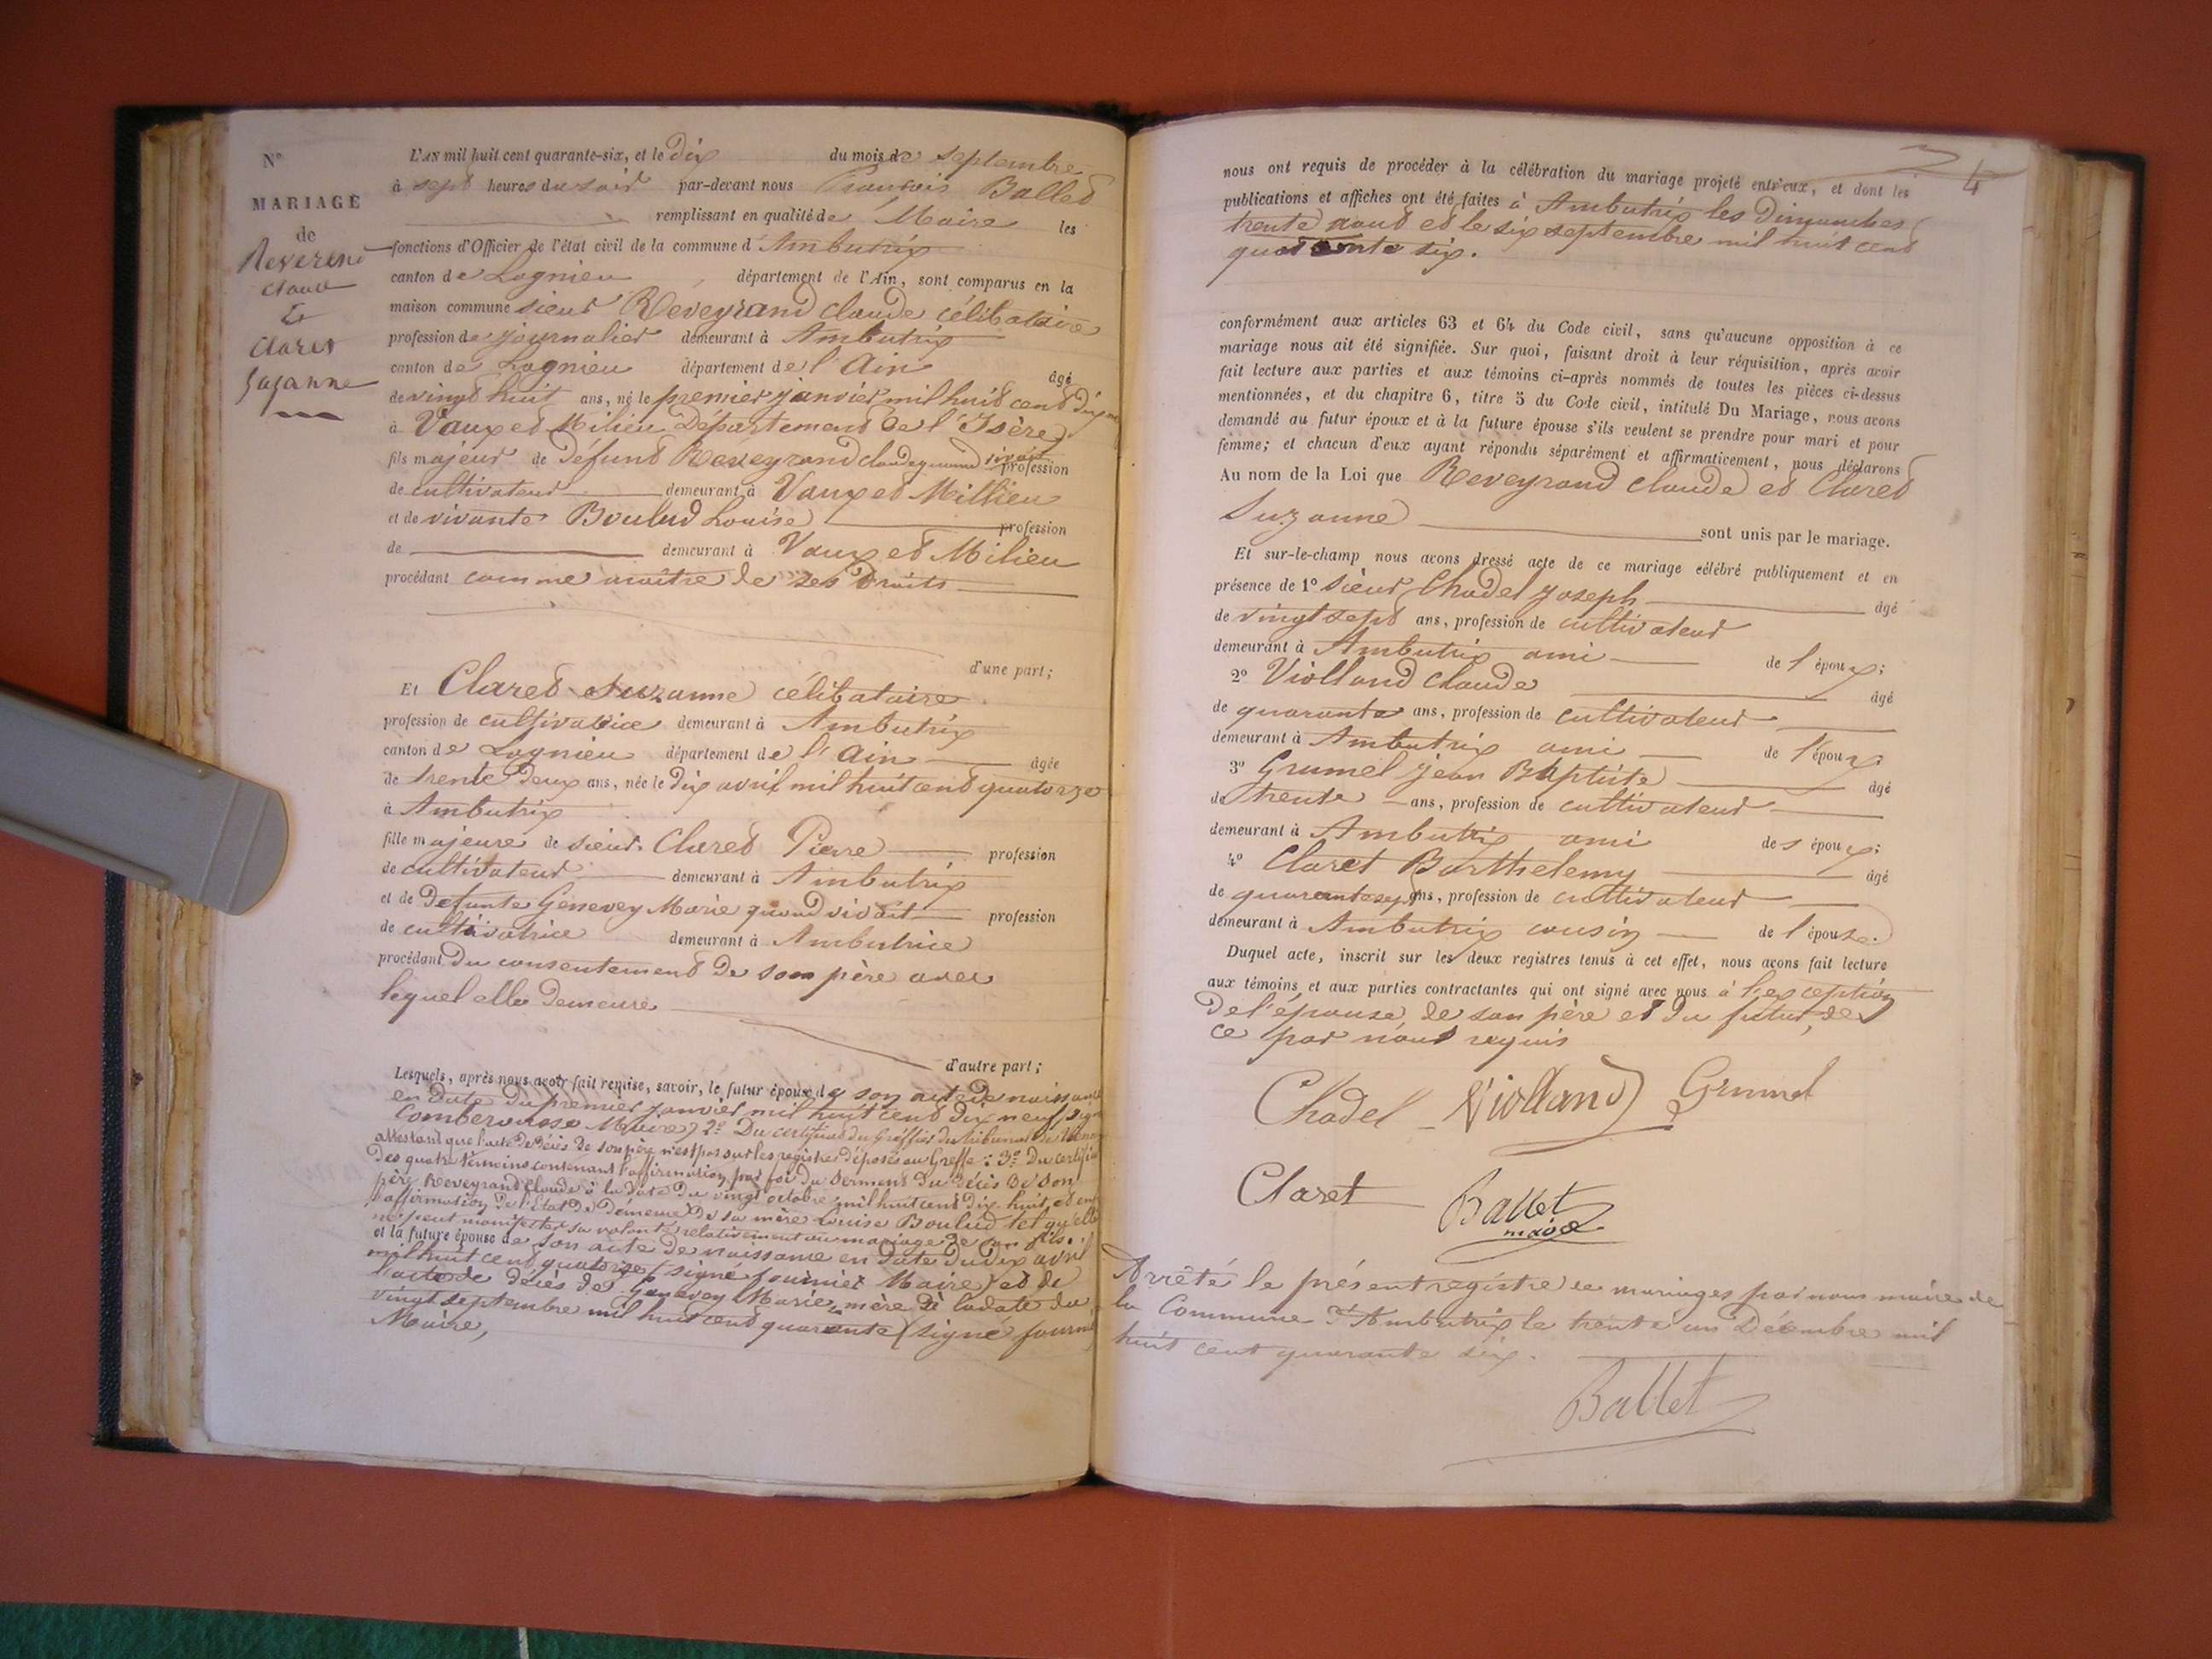 N°
MARIAGE
de
Reverend
Claude
Et
Claret
Suzanne
L'AN mil huit cent quarante-six, et le Dix du mois de septembre
à sept heures du soir par-devant nous François Ballet
remplissant en qualité de Maire les
fonctions d'Officier de l'état civil de la commune d'Ambutrix
canton de Lagnieu, département de l'Ain, sont comparus en la
maison commune sieur Reveyrand Claude célibataire
profession de journalier demeurant à Ambutrix
canton de Lagnieu département de l'Ain âgé
de vingt huit ans, né le premier janvier mil huit cent dix
à Vaux et Milieu Département de l'Isère
fils majeur de Défunt Reveyrand Claude quand vivait profession
de cultivateur demeurant à Vaux et Millieu
et de vivante Boulud Louise profession
de demeurant à Vaux et Milieu
procédant comme maître de ses Droits
d'une part;
Et Claret Suzanne célibataire
profession de cultivatrice demeurant à Ambutrix
canton de Lagnieu département de l'Ain âgée
de trente deux ans, née le Dix avril mil huit cent quatorze
à Ambutrix
fille majeure de sieur Claret Pierre profession
de cultivateur demeurant à Ambutrix
et de Defunte Genevey Marie quand vivait profession
de cultivatrice demeurant à Ambutrice
procédant Du consentement De son père avec
lequel elle Demeure
d'autre part;
Lesquels, après nous avoir fait remise, savoir, le futur époux de son acte de naissance
en date du premier janvier mil huit cent dix neuf, signé
Comberousse Maire) 2° Du certificat du Greffier du tribunal de
attestant que l'acte de décès de son père n'est pas sur les registres déposés au Greffe : 3° Du certificat
Des quatre témoins contenant l'affirmation par foi du serment du décès de son
père Reveyrand Claude à la date du vingt octobre mil huit cent dix huit, et
l'affirmation de l'Etat De Demeure De sa mère Louise Boulud tel qu'elle
ne peut manifester sa volonté relativement au mariage de son fils.
et la future épouse de son acte de naissance en date du dix avril
mil huit cent quatorze (signé fournier Maire) et de
l'acte de décès de Genevey Marie, mère à la date du
vingt septembre mil huit cent quarante (signé
Maire,
4
nous ont requis de procéder à la célébration du mariage projeté entr'eux, et dont les
publications et affiches ont été faites à Ambutrix les Dimanches
trente aout et le six septembre mil huit cent
quarante six.
conformément aux articles 63 et 64 du Code civil, sans qu'aucune opposition à ce
mariage nous ait été signifiée. Sur quoi, faisant droit à leur réquisition, après avoir
fait lecture aux parties et aux témoins ci-après nommés de toutes les pièces ci-dessus
mentionnées, et du chapitre 6, titre 5 du Code civil, intitulé Du Mariage, nous avons
demandé au futur époux et à la future épouse s'ils veulent se prendre pour mari et pour
femme; et chacun d'eux ayant répondu séparément et affirmativement, nous déclarons
Au nom de la Loi que Reveyrand Claude et Claret
Suzanne sont unis par le mariage.
Et sur-le-champ nous avons dressé acte de ce mariage célébré publiquement et en
présence de 1° sieur Chadel Joseph âgé
de vingt sept ans, profession de cultivateur
demeurant à Ambutrix ami de l'époux;
2° Violland Claude âgé
de quarante ans, profession de cultivateur
demeurant à Ambutrix ami de l'époux;
3° Grumel Jean Baptiste âgé
de trente ans, profession de cultivateur
demeurant à Ambutrix ami des époux;
4° Claret Barthelemy âgé
de quarante sept ans, profession de cultivateur
demeurant à Ambutrix cousin de l'épouse.
Duquel acte, inscrit sur les deux registres tenus à cet effet, nous avons fait lecture
aux témoins et aux parties contractantes qui ont signé avec nous à l'exception
De l'épouse, de son père et du futur, de
ce par nous requis
Chadel Violland Grumel
Claret Ballet
maire
Arrêté le présent registre de mariages par nous maire de
la Commune d'Ambutrix le trente un Décembre mil
huit cent quarante six.
Ballet